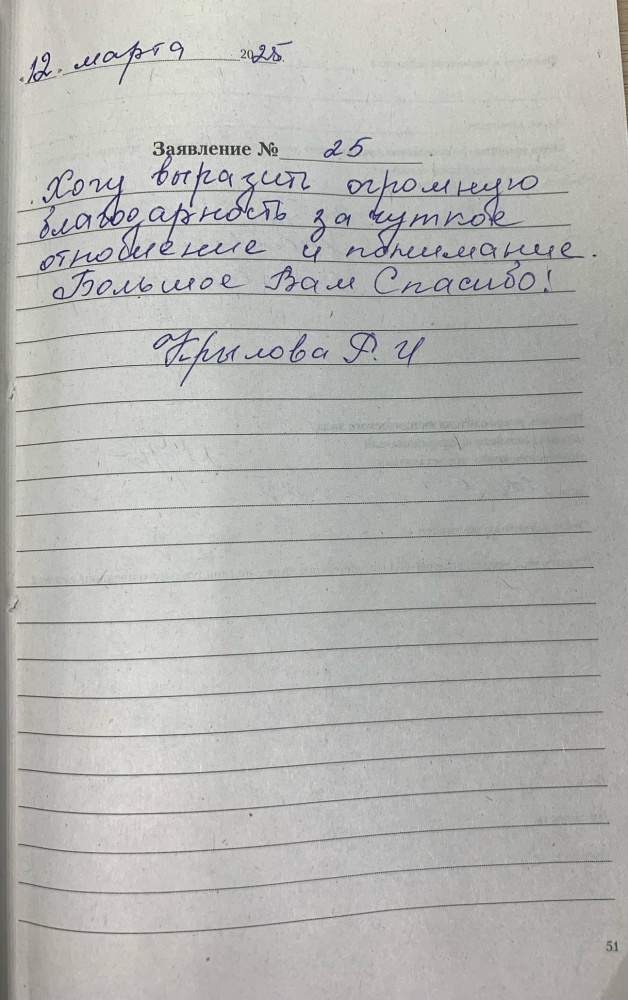 12. марта 2025
Заявление № 25
Хочу выразить огромную
благодарность за чуткое
отношение и понимание.
Большое Вам Спасибо!
Крылова Р. И
51